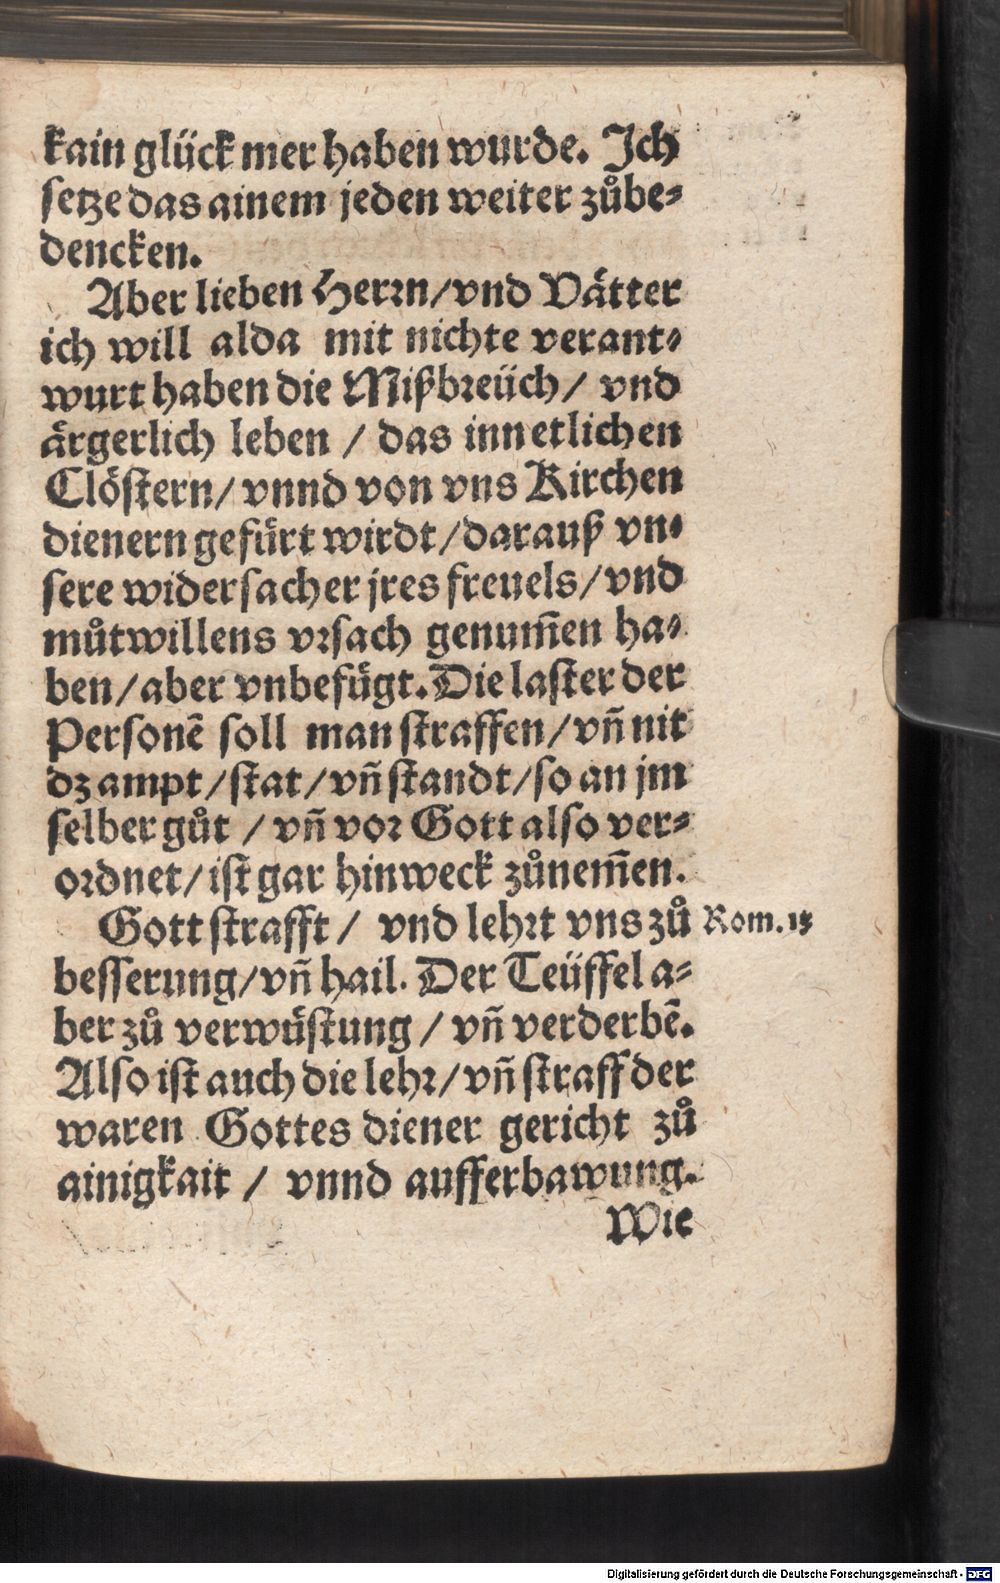 kain glück mer haben wurde. Ich
setze das ainem jeden weiter zůbe⸗
dencken.
Aber lieben Herrn/vnd Vätter
ich will alda mit nichte verant⸗
wurt haben die Mißbreüch/ vnd
ärgerlich leben / das inn etlichen
Clöstern/ vnnd von vns Kirchen
dienern gefürt wirdt/darauß vn⸗
sere widersacher jres freuels/vnd
můtwillens vrsach genum̃en ha⸗
ben/aber vnbefügt. Die laster der
Personẽ soll man straffen/vñ nit
dz ampt/stat/vñ standt/so an jm
selber gůt / vñ vor Gott also ver⸗
ordnet/ist gar hinweck zůnem̃en.
Gott strafft/ vnd lehrt vns zů Rom.
besserung/vñ hail. Der Teüffel a⸗
ber zů verwüstung / vñ verderbẽ.
Also ist auch die lehr/vñ straff der
waren Gottes diener gericht zů
ainigkait / vnnd aufferbawung.
Wie
Digitalisierung gefördert durch die Deutsche Forschungsgemeinschaft - DFG